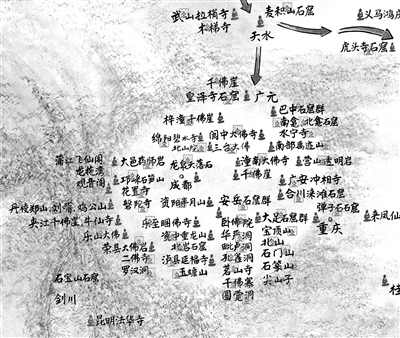 武山拉梢寺
木梯寺
麦积山石窟
天水
义马鸿庆
虎头寺石窟
千佛崖
皇泽寺石窟
广元
梓潼千佛崖
巴中石窟群
南龛 北龛石窟
水宁寺
绵阳碧水寺
阆中大佛寺
北山院
三台大佛
南部禹迹山
蒲江飞仙阁
龙拖湾
观音阁
大邑药师岩
龙泉大落石
潼南大佛寺
营山透明岩
邛崃石笋山
花置寺
磐陀寺
成都
千佛崖
广安冲相寺
合川涞滩石窟
丹棱郑山、刘嘴、鸡公山
资阳半月山
安岳石窟群
弹子石石窟
夹江千佛崖
牛仙寺
乐至睏佛寺
卧佛院
大足石窟群
重庆
来凤仙
乐山大佛
资中重龙山
华严洞
宝顶山
荣县大佛岩
北岩石窟
毗卢洞
北山
二佛寺
泸县延福寺
孔雀洞
石门山
罗汉洞
玉塘山
茗山寺
石篆山
石宝山石窟
千佛寨
尖山子
剑川
圆觉洞
昆明法华寺
桂